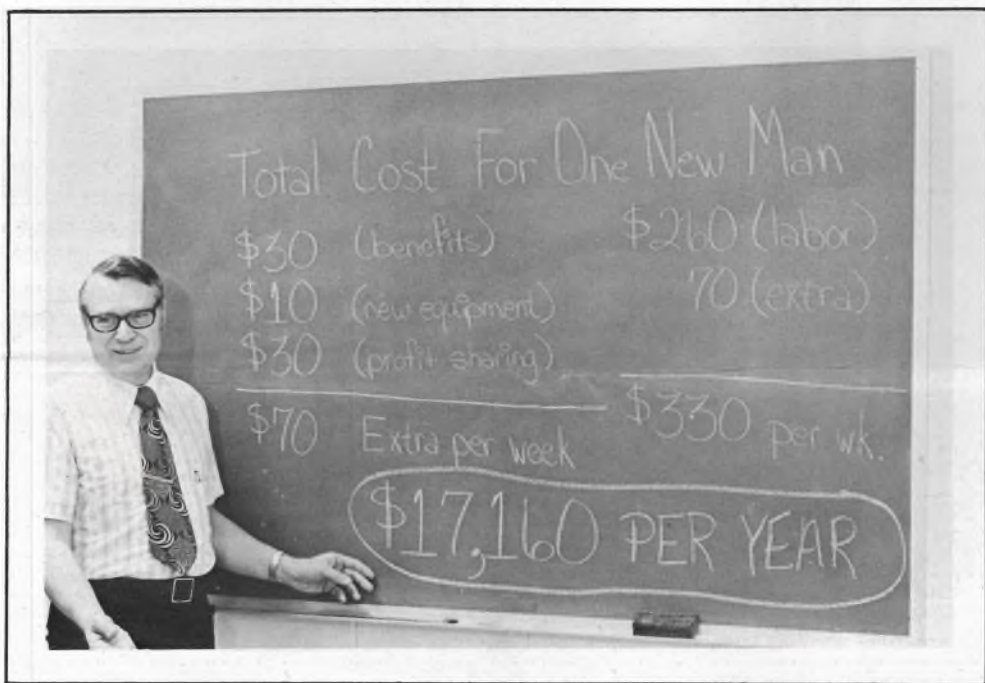 Total Cost For One New Man
$30 (benefits)
$10 (new equipment)
$30 (profit sharing)
$70 Extra per week
$260 (labor)
70 (extra)
$330 per wk.
$17,160 PER YEAR